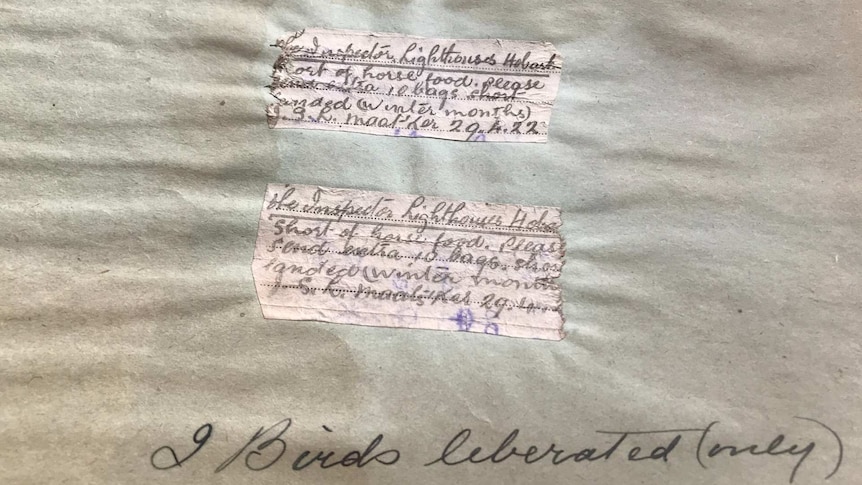 The Inspector Lighthouses Hobart
Short of horse food. please
send extra 10 bags short
landed (winter months)
S. L. 29.4.22
The Inspector Lighthouses
Short of horse food. Pleas
send extra 10 bags. shor
landed (Winter month
S. L. 29.4.
2 Birds leberated (only)